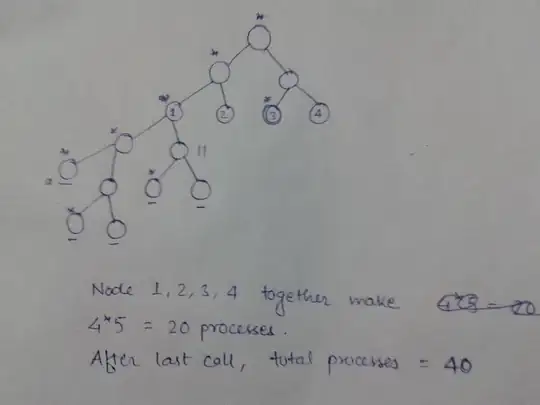 *
*
* 1 2 * 3 4
*
* 11
a * 
*
Node 1, 2, 3, 4 together make 4*5 = 20
4*5 = 20 processes.
After last call, total processes = 40